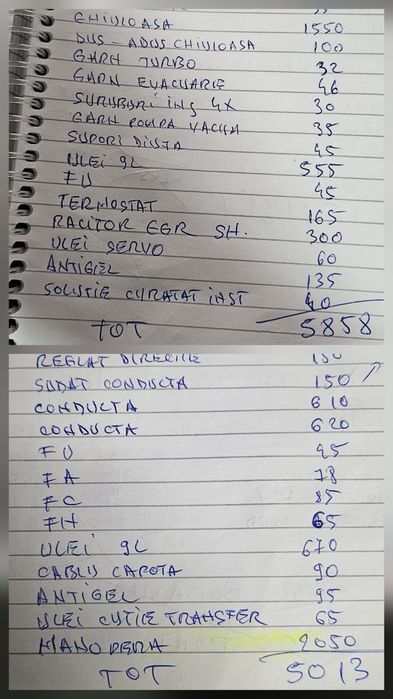 CHIULOASA 1550
DUS - ADUS CHIULOASA 100
GARN TURBO 32
GARN EVACUARE 46
SURUBURI ING 4X 30
GARN POMPA VACUM 35
SUPORT DIUZA 45
ULEI 9L 555
FU 45
TERMOSTAT 165
RACITOR EGR SH. 300
ULEI SERVO 60
ANTIGEL 135
SOLUTIE CURATAT INST 40
TOT 5858
REGLAT DIRECTIE 150
SUDAT CONDUCTA 150
CONDUCTA 610
CONDUCTA 620
FU 45
FA 78
FC 85
FH 65
ULEI 9L 670
CABLU CAPOTA 90
ANTIGEL 95
ULEI CUTIE TRANSFER 65
MANOPERA 2050
TOT 5013